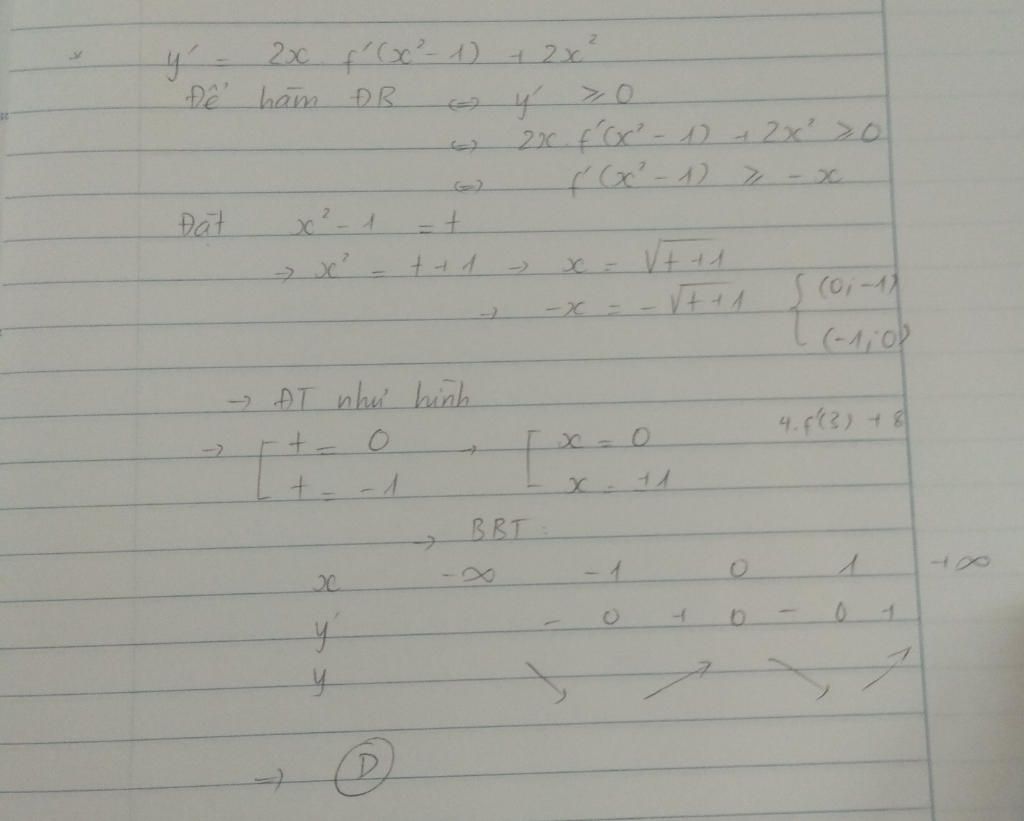 y' = 2x. f'(x² - 1) + 2x²
Để hàm ĐB ⇔ y' ≥ 0
⇔ 2x. f'(x² - 1) + 2x² ≥ 0
⇔ f'(x² - 1) ≥ -x
Đặt x² - 1 = t
→ x² = t + 1 → x = √(t + 1)
→ -x = -√(t + 1) { (0; -1)
(-1; 0)
→ ĐT như hình
4. f'(3) + 8
→ [ t = 0 → [ x = 0
t = -1 x = ±1
→ BBT:
x -∞ -1 0 1 +∞
y' - 0 + 0 - 0 +
y ↘ ↗ ↘ ↗
⇒ D